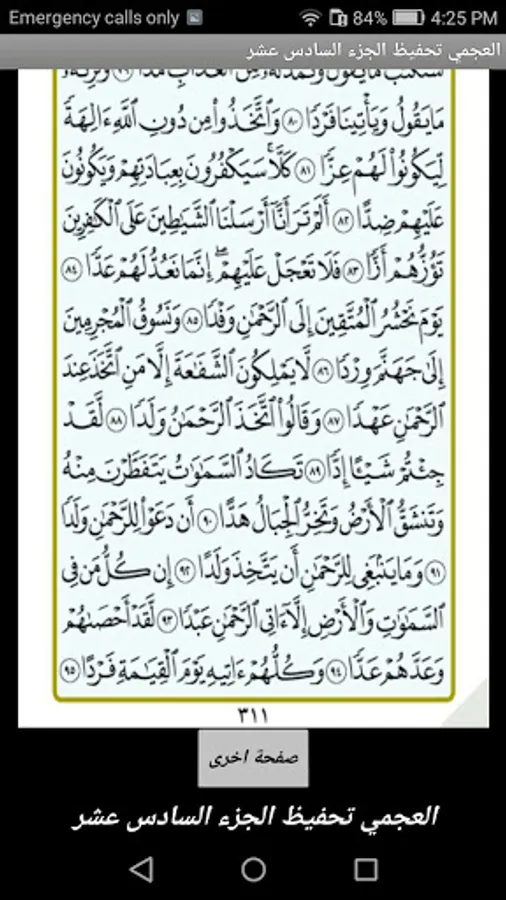 Emergency calls only 84% 4:25 PM
العجمي تحفيظ الجزء السادس عشر
سَنَكْتُبُ مَا يَقُولُ وَنَمُدُّ لَهُ مِنَ الْعَذَابِ مَدًّا ٧٩ وَنَرِثُهُ
مَا يَقُولُ وَيَأْتِينَا فَرْدًا ٨٠ وَاتَّخَذُوا مِن دُونِ اللَّهِ ءَالِهَةً
لِّيَكُونُوا لَهُمْ عِزًّا ٨١ كَلَّا سَيَكْفُرُونَ بِعِبَادَتِهِمْ وَيَكُونُونَ
عَلَيْهِمْ ضِدًّا ٨٢ أَلَمْ تَرَ أَنَّا أَرْسَلْنَا الشَّيَاطِينَ عَلَى الْكَافِرِينَ
تَؤُزُّهُمْ أَزًّا ٨٣ فَلَا تَعْجَلْ عَلَيْهِمْ إِنَّمَا نَعُدُّ لَهُمْ عَدًّا ٨٤
يَوْمَ نَحْشُرُ الْمُتَّقِينَ إِلَى الرَّحْمَٰنِ وَفْدًا ٨٥ وَنَسُوقُ الْمُجْرِمِينَ
إِلَىٰ جَهَنَّمَ وِرْدًا ٨٦ لَّا يَمْلِكُونَ الشَّفَاعَةَ إِلَّا مَنِ اتَّخَذَ عِندَ
الرَّحْمَٰنِ عَهْدًا ٨٧ وَقَالُوا اتَّخَذَ الرَّحْمَٰنُ وَلَدًا ٨٨ لَّقَدْ
جِئْتُمْ شَيْئًا إِدًّا ٨٩ تَكَادُ السَّمَاوَاتُ يَتَفَطَّرْنَ مِنْهُ
وَتَنشَقُّ الْأَرْضُ وَتَخِرُّ الْجِبَالُ هَدًّا ٩٠ أَن دَعَوْا لِلرَّحْمَٰنِ وَلَدًا
٩١ وَمَا يَنبَغِي لِلرَّحْمَٰنِ أَن يَتَّخِذَ وَلَدًا ٩٢ إِن كُلُّ مَن فِي
السَّمَاوَاتِ وَالْأَرْضِ إِلَّا ءَاتِي الرَّحْمَٰنِ عَبْدًا ٩٣ لَّقَدْ أَحْصَاهُمْ
وَعَدَّهُمْ عَدًّا ٩٤ وَكُلُّهُمْ ءَاتِيهِ يَوْمَ الْقِيَامَةِ فَرْدًا ٩٥
٣١١
صفحة اخرى
العجمي تحفيظ الجزء السادس عشر